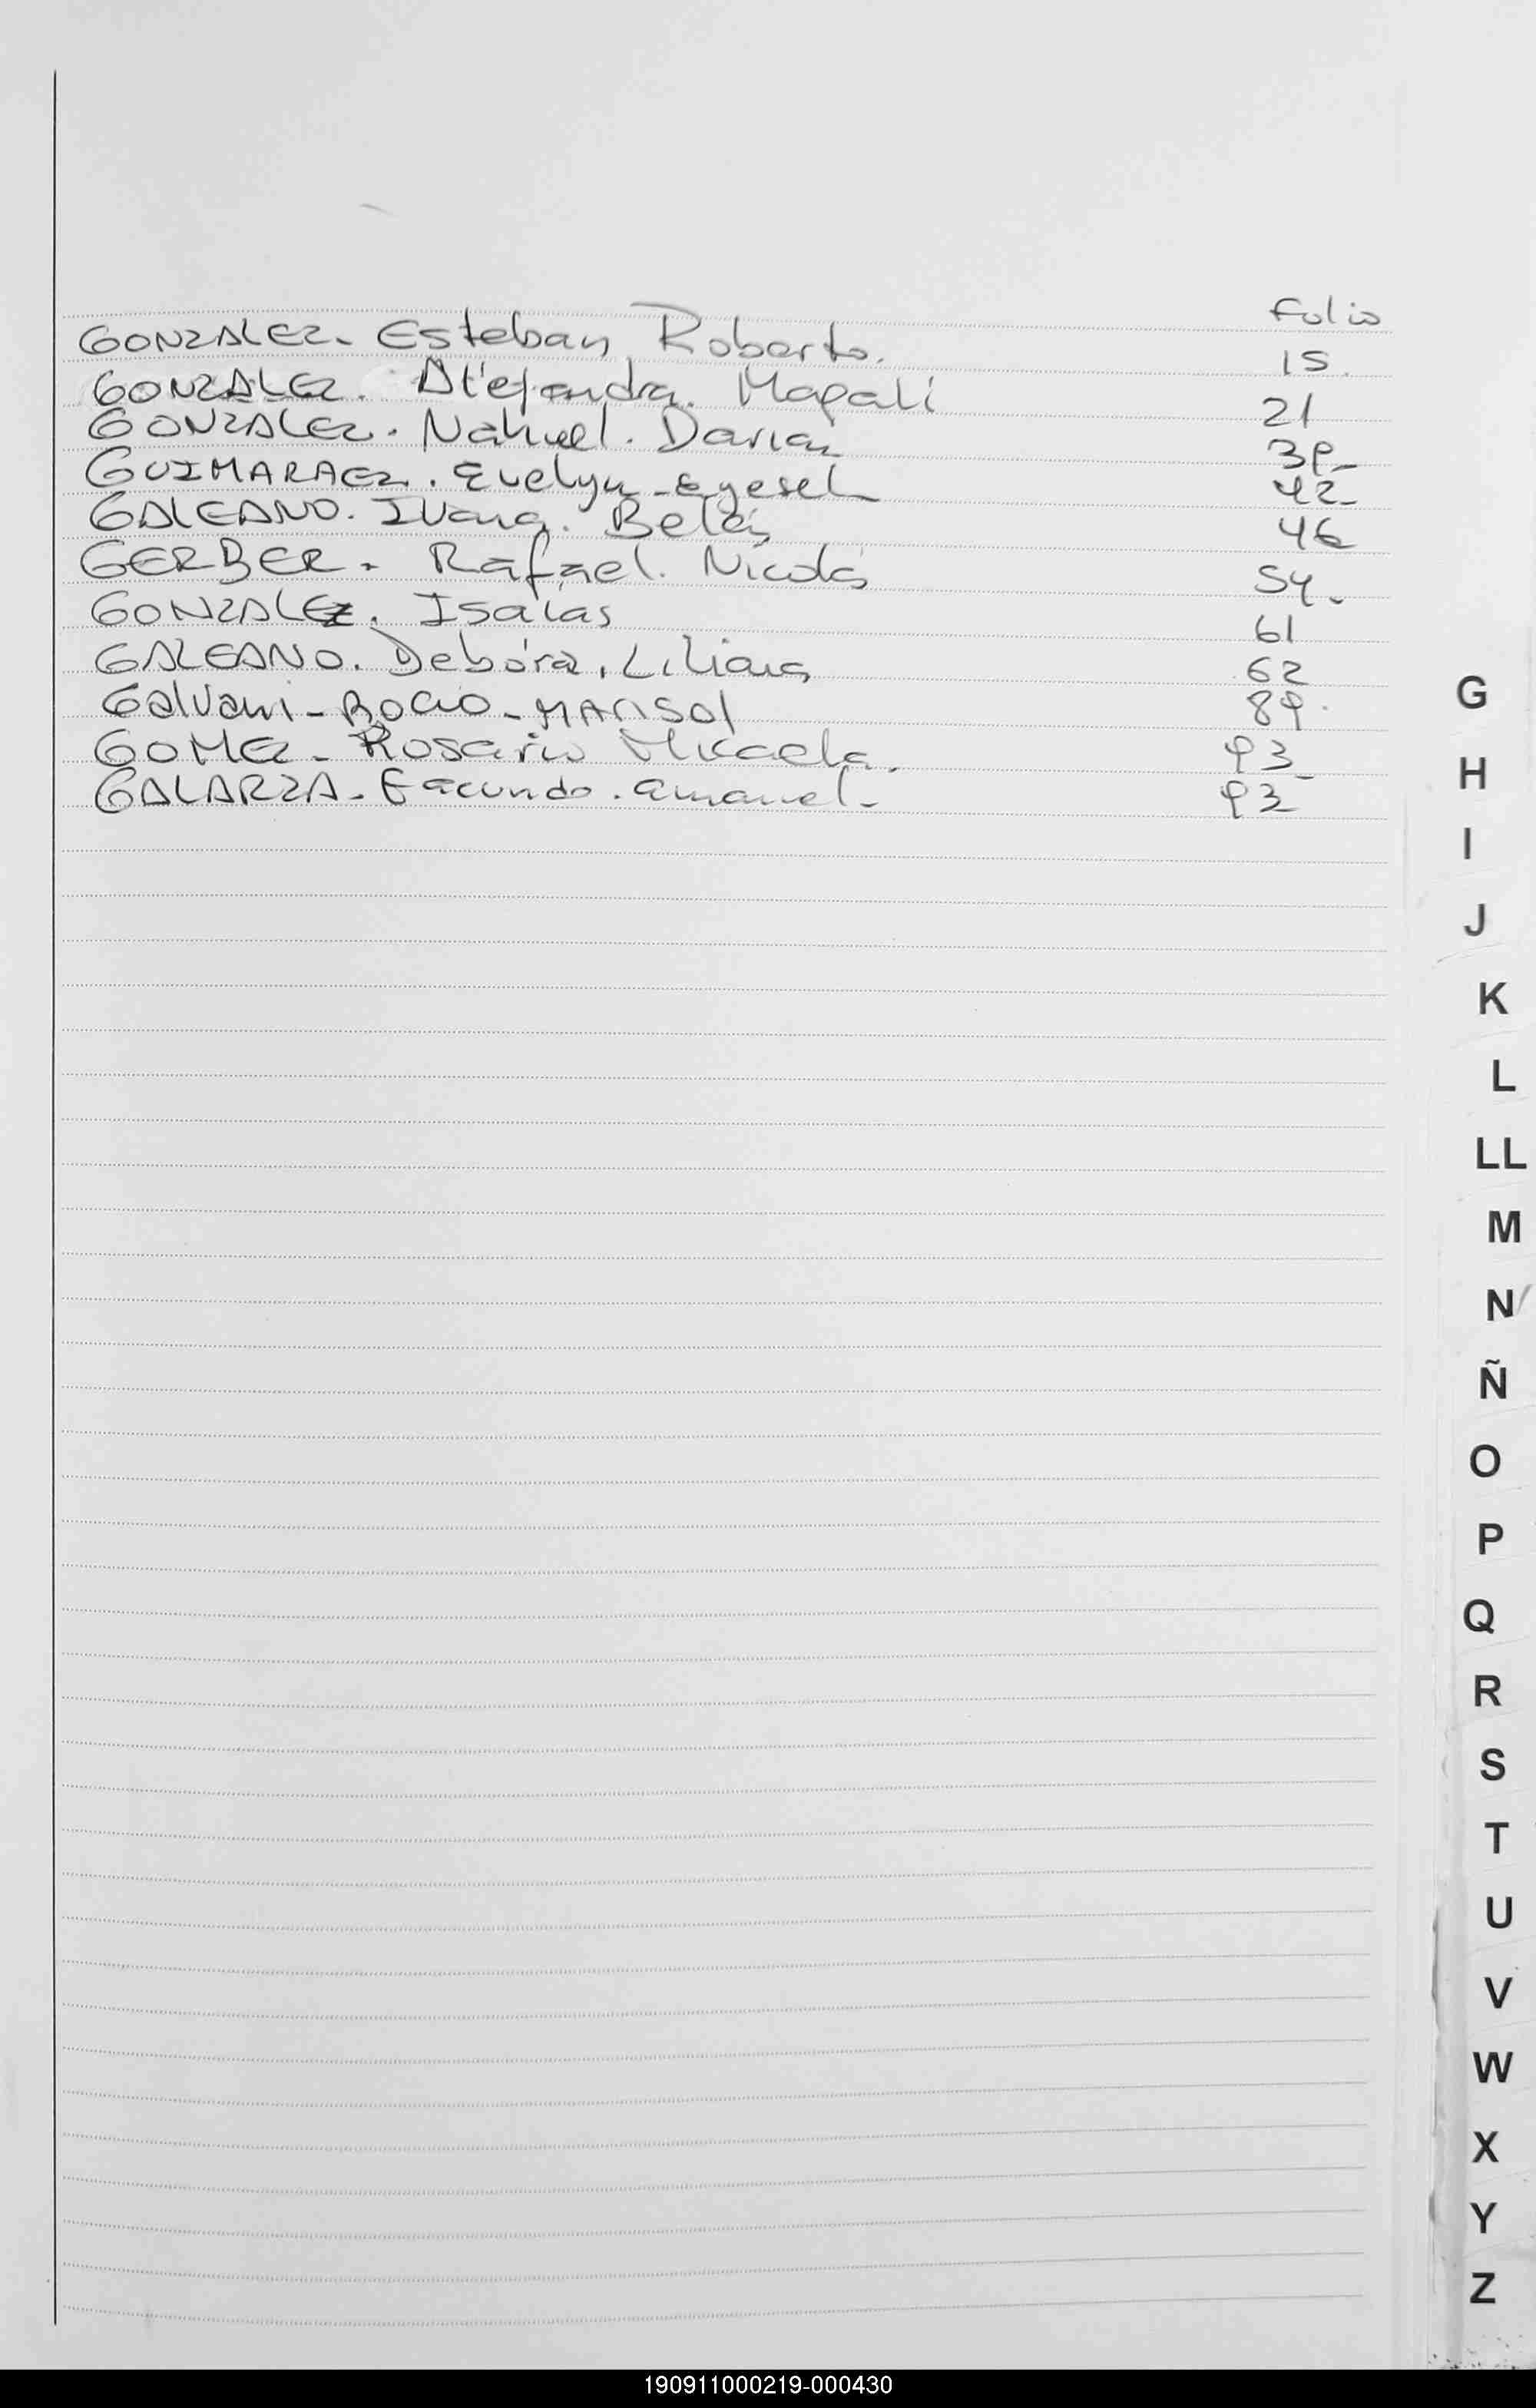 Folio
GONZALEZ. Esteban Roberto. 15.
GONZALEZ. Alejandra. Magali 21
GONZALEZ. Nahuel. Darian 39-
GUIMARAEZ. Evelyn - 42-
GALEANO. Ivana. Belén 46
GERBER. Rafael. Nicolás 54.
GONZALEZ. Isaías 61
GALEANO. Debora. Liliana 62
Galvani - ROCIO - MARISOl 89.
GOMEZ - Rosario Micaela. 93-
GALARZA - Facundo. Emanuel - 93
G
H
I
J
K
L
LL
M
N
Ñ
O
P
Q
R
S
T
U
V
W
X
Y
Z
190911000219-000430